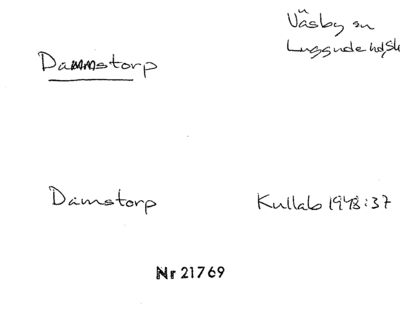 Väsby sn
Dammstorp
Luggude hd, Sk
Damstorp Kullab 1948:37
Nr 21769